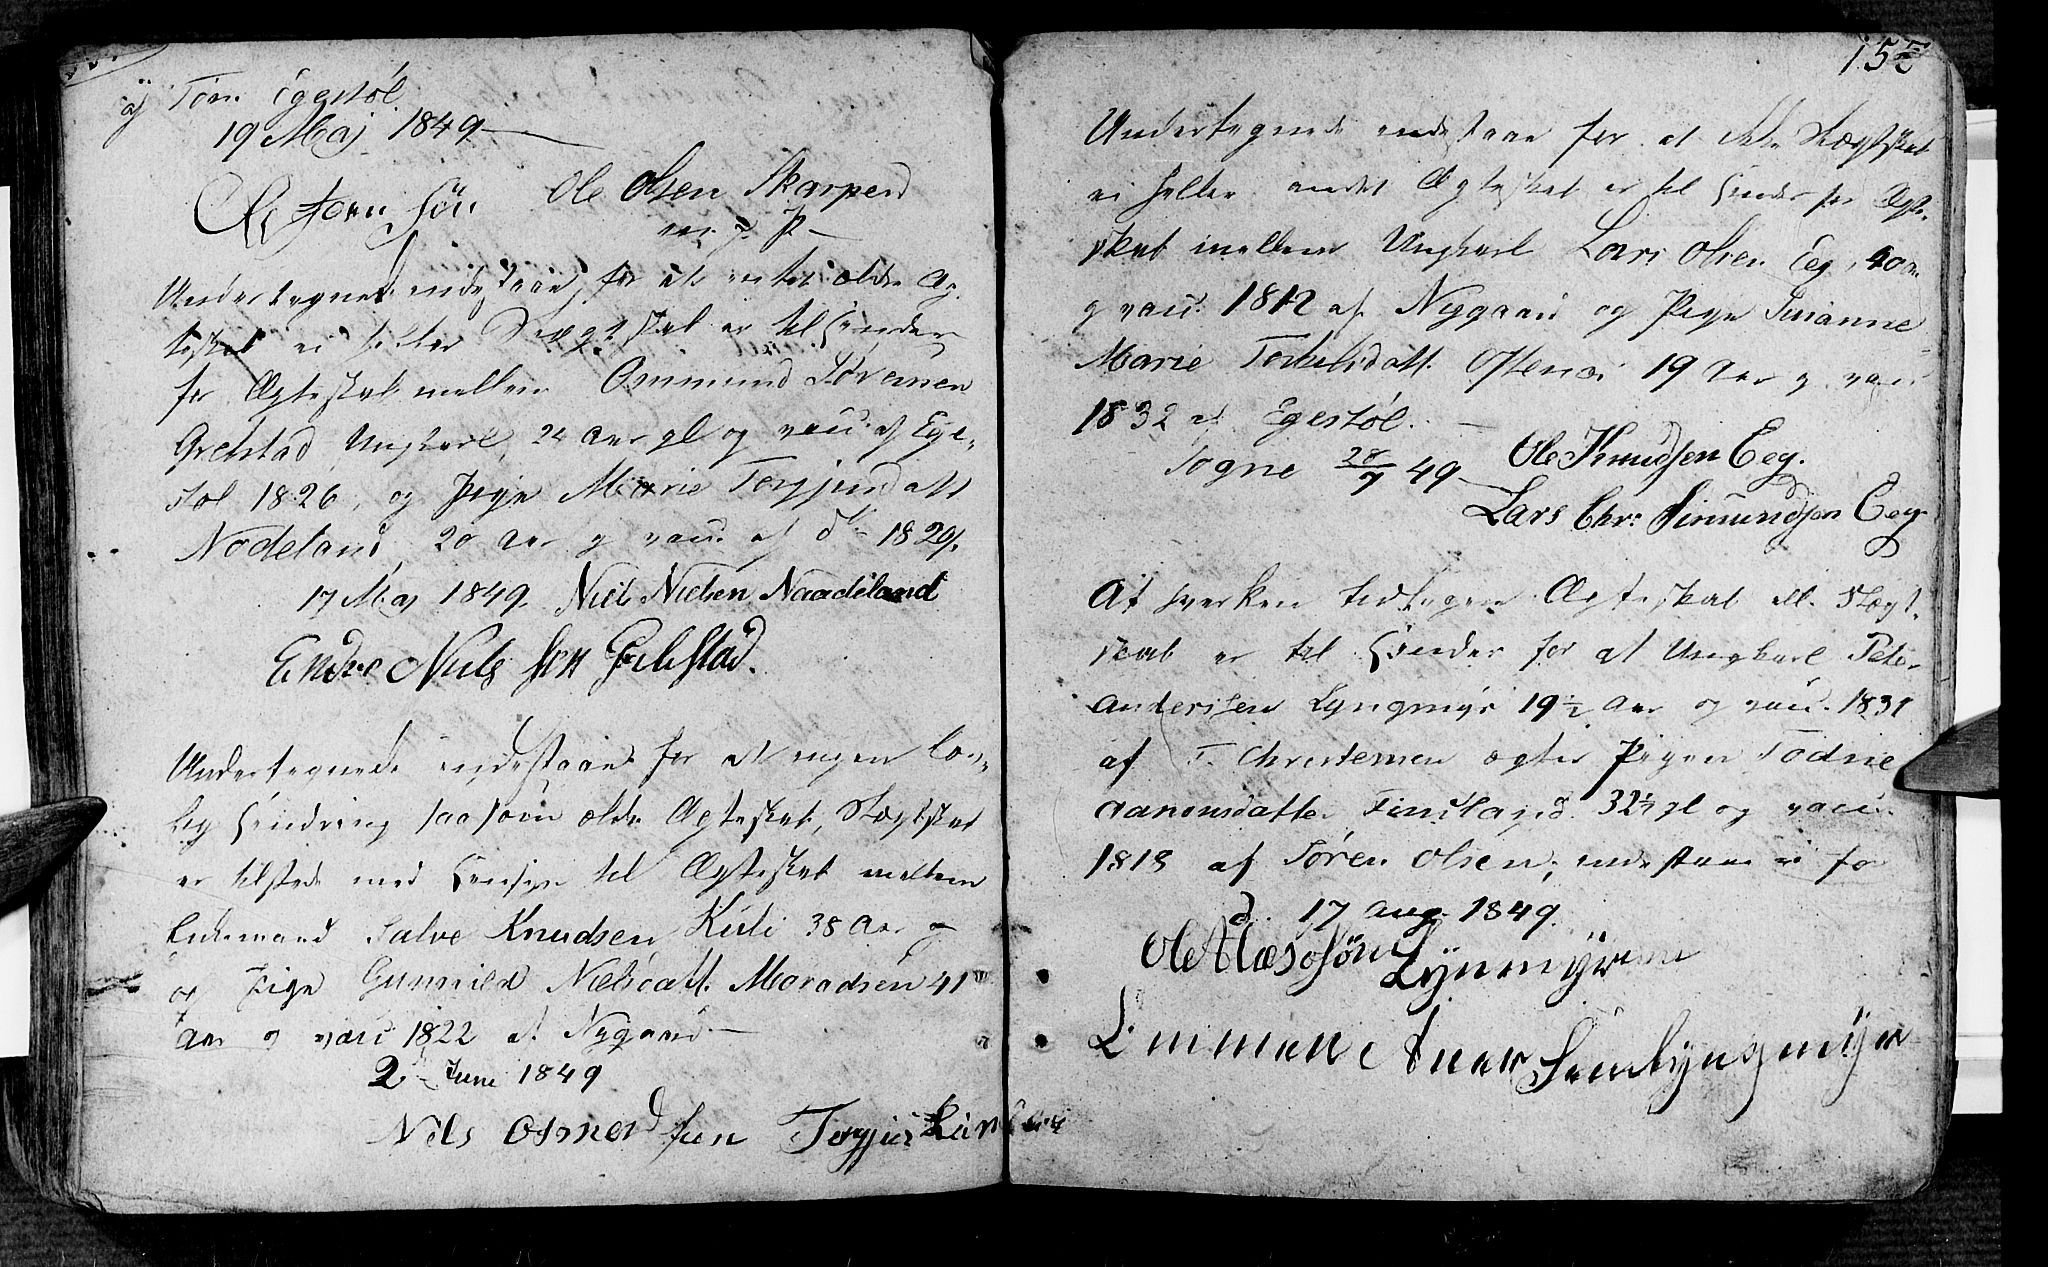 af Tøn. Egestøl
19 Maj 1849
Ole Olsen Skarperd
m. f. P
Undertegnede indestaae for at intet ældre Æg-
teskab ei heller Slægtskab er til Hinder
for Ægteskab mellem Ommund Sørensen
Grelstad Ungkarl, 24 Aar gl og vacc. af Ege-
støl 1826, og Pige Marie Torgjusdatt
Nodeland 20 Aar og vacc. af do 1829.
17 Maj 1849. Niels Nielsen Naadeland
Ender Niels sen Grelstad.
Undertegnede indestaae for at ingen lov-
lig Hindring saasom ældre Ægteskab, Slægtskab
er tilstede med Hensyn til Ægteskab mellem
Enkemand Salve Knudsen Kuli 38 Aar og
og Pige Gunnild Nelsdatt. Moradsen 41
Aar og vacc 1822 af Nygaard
2 Juni 1849
Nels Osmondsen Torgjus
155
Undertegnede indestaae for at ikke Slægtskab
ei heller andet Ægteskab er til Hinder for Ægte-
skab mellem Ungkarl Lars Olsen Eeg, 40
g vacc. 1812 af Nygaard og Pige Susanne
Marie Torkelsdatt. Oftenes 19 Aar g vacc
1832 af Egestøl.
Søgne 28/7 49 Ole Knudsen Eeg.
Lars Chr: Simundsen Eeg
At hverken tidligere Ægteskab ell. Slægt-
skab er til Hinder for at Ungkarl Peter
Andersen Lyngmyr 19 1/2 Aar og vacc. 1831
af T. Christensen ægter Pigen Todne
Aanonsdatter Finsland 32 1/2 gl og vacc.
1818 af Søren Olsen, indestaae vi for
d. 17 Aug. 1849.
Ole Aasosøn Lynmyren
Emmen Aner Sen Lyngmyr